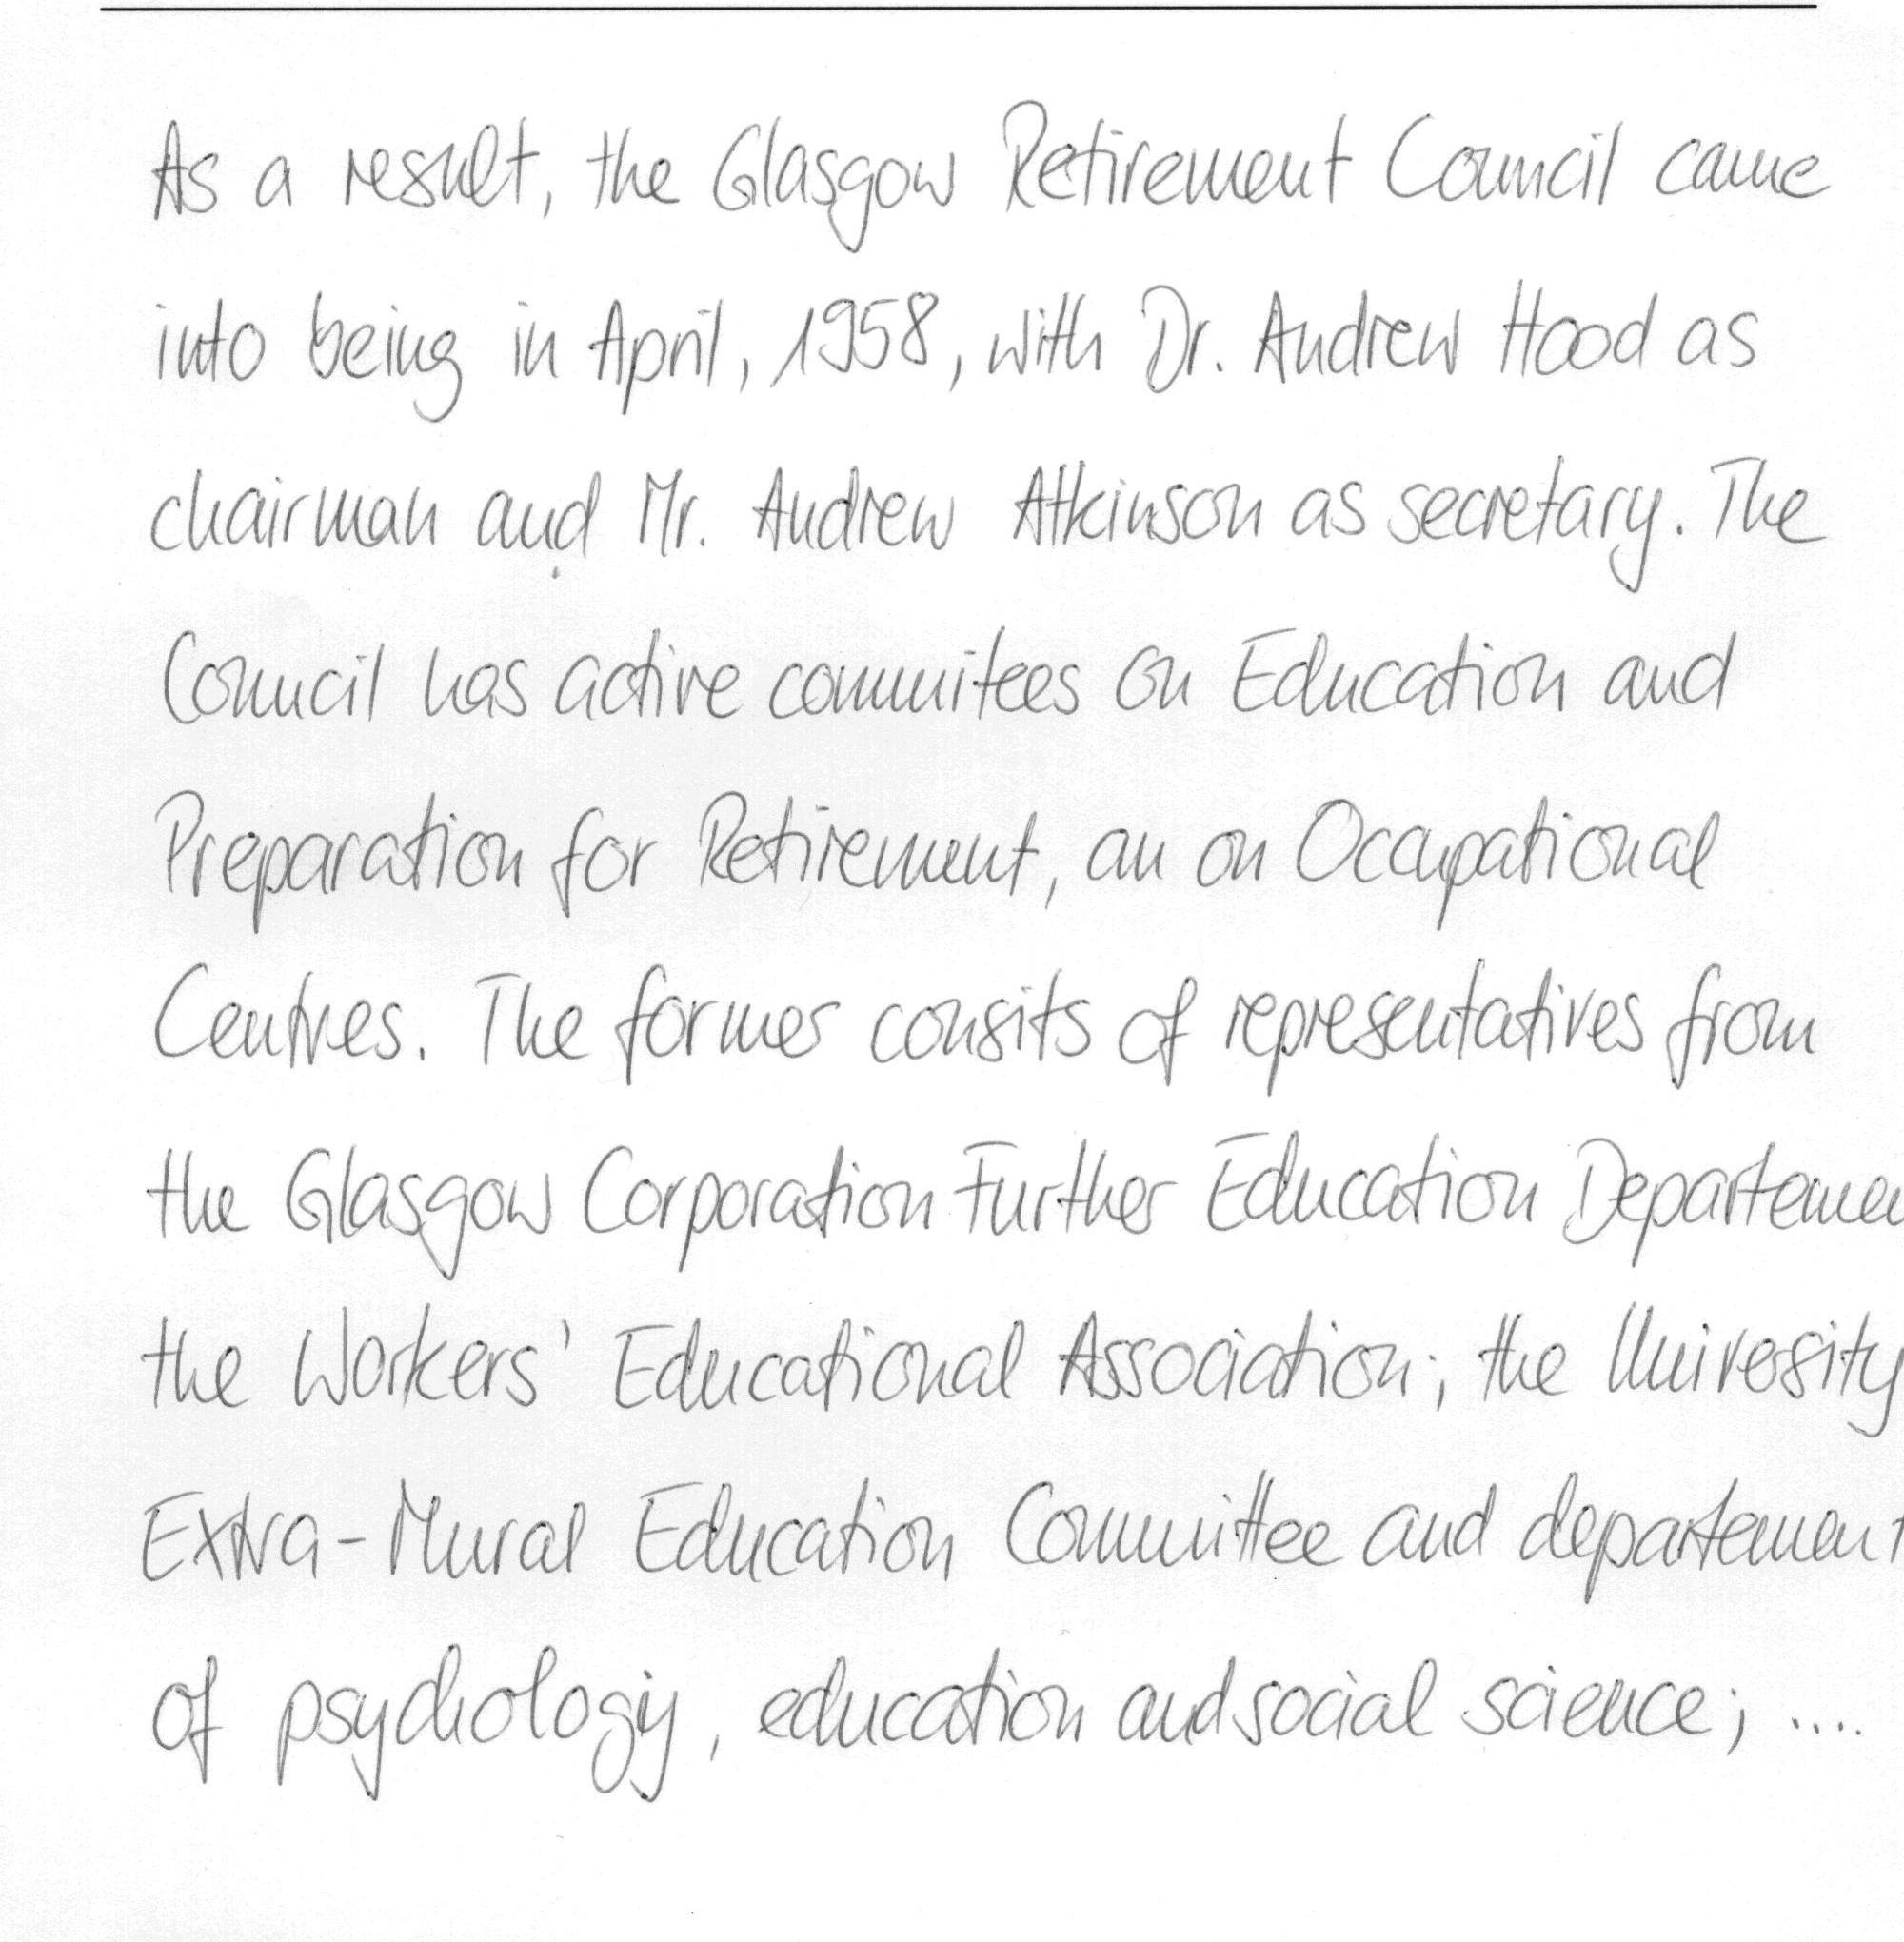 As a result, the Glasgow Retirement Council came
into being in April, 1958, with Dr. Andrew Hood as
chairman and Mr. Andrew Atkinson as secretary. The
Council has active commitees on Education and
Preparation for Retirement, an on Occupational
Centres. The former consits of representatives from
the Glasgow Corporation Further Education Departemen
the Workers' Educational Association; the University
Extra-Mural Education Committee and departement
of psychology, education and social science; ....